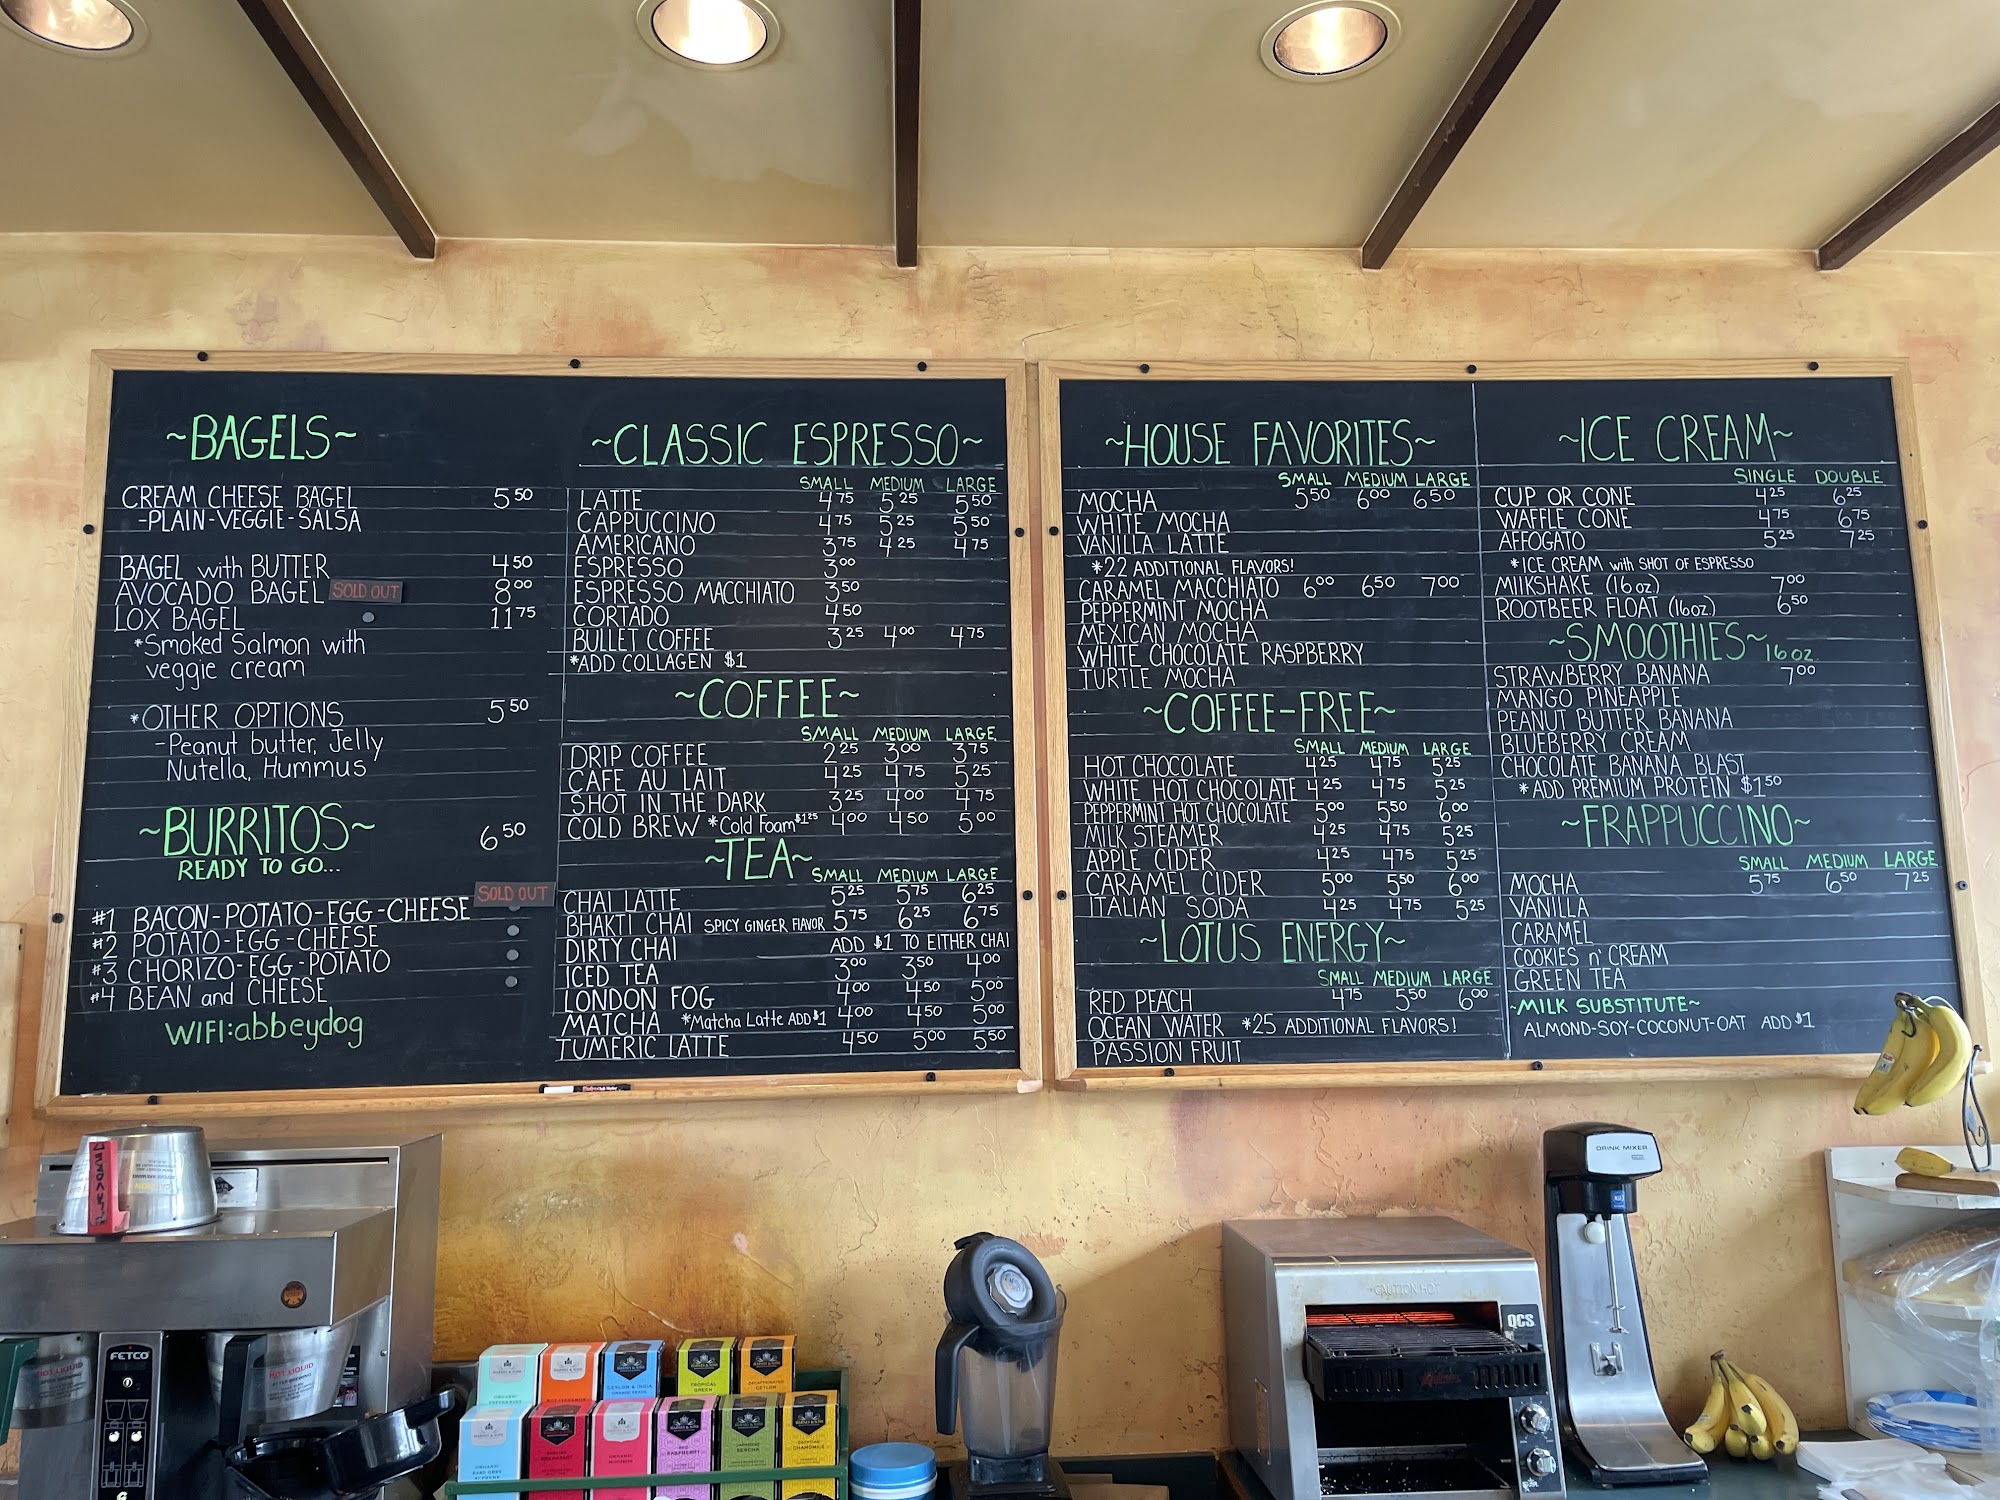 ~BAGELS~
CREAM CHEESE BAGEL 5 50
-PLAIN-VEGGIE-SALSA
BAGEL with BUTTER 4 50
AVOCADO BAGEL SOLD OUT 8 00
LOX BAGEL 11 75
*Smoked Salmon with
veggie cream
*OTHER OPTIONS 5 50
-Peanut butter, Jelly
Nutella, Hummus
~BURRITOS~ 6 50
READY TO GO...
SOLD OUT
#1 BACON-POTATO-EGG-CHEESE
#2 POTATO-EGG-CHEESE
#3 CHORIZO-EGG-POTATO
#4 BEAN and CHEESE
WIFI:abbeydog
~CLASSIC ESPRESSO~
SMALL MEDIUM LARGE
LATTE 4 75 5 25 5 50
CAPPUCCINO 4 75 5 25 5 50
AMERICANO 3 75 4 25 4 75
ESPRESSO 3 00
ESPRESSO MACCHIATO 3 50
CORTADO 4 50
BULLET COFFEE 3 25 4 00 4 75
*ADD COLLAGEN $1
~COFFEE~
SMALL MEDIUM LARGE
DRIP COFFEE 2 25 3 00 3 75
CAFE AU LAIT 4 25 4 75 5 25
SHOT IN THE DARK 3 25 4 00 4 75
COLD BREW *Cold Foam $1 25 4 00 4 50 5 00
~TEA~
SMALL MEDIUM LARGE
CHAI LATTE 5 25 5 75 6 25
BHAKTI CHAI SPICY GINGER FLAVOR 5 75 6 25 6 75
DIRTY CHAI ADD $1 TO EITHER CHAI
ICED TEA 3 00 3 50 4 00
LONDON FOG 4 00 4 50 5 00
MATCHA *Matcha Latte ADD $1 4 00 4 50 5 00
TUMERIC LATTE 4 50 5 00 5 50
~HOUSE FAVORITES~
SMALL MEDIUM LARGE
MOCHA 5 50 6 00 6 50
WHITE MOCHA
VANILLA LATTE
*22 ADDITIONAL FLAVORS!
CARAMEL MACCHIATO 6 00 6 50 7 00
PEPPERMINT MOCHA
MEXICAN MOCHA
WHITE CHOCOLATE RASPBERRY
TURTLE MOCHA
~COFFEE-FREE~
SMALL MEDIUM LARGE
HOT CHOCOLATE 4 25 4 75 5 25
WHITE HOT CHOCOLATE 4 25 4 75 5 25
PEPPERMINT HOT CHOCOLATE 5 00 5 50 6 00
MILK STEAMER 4 25 4 75 5 25
APPLE CIDER 4 25 4 75 5 25
CARAMEL CIDER 5 00 5 50 6 00
ITALIAN SODA 4 25 4 75 5 25
~LOTUS ENERGY~
SMALL MEDIUM LARGE
RED PEACH 4 75 5 50 6 00
OCEAN WATER *25 ADDITIONAL FLAVORS!
PASSION FRUIT
~ICE CREAM~
SINGLE DOUBLE
CUP OR CONE 4 25 6 25
WAFFLE CONE 4 75 6 75
AFFOGATO 5 25 7 25
*ICE CREAM with SHOT OF ESPRESSO
MILKSHAKE (16 oz.) 7 00
ROOTBEER FLOAT (16oz.) 6 50
~SMOOTHIES~ 16 oz.
STRAWBERRY BANANA 7 00
MANGO PINEAPPLE
PEANUT BUTTER BANANA
BLUEBERRY CREAM
CHOCOLATE BANANA BLAST
*ADD PREMIUM PROTEIN $1 50
~FRAPPUCCINO~
SMALL MEDIUM LARGE
MOCHA 5 75 6 50 7 25
VANILLA
CARAMEL
COOKIES n' CREAM
GREEN TEA
~MILK SUBSTITUTE~
ALMOND-SOY-COCONUT-OAT ADD $1
DRINK MIXER
CAUTION HOT
QCS
FETCO
HOT LIQUID
HOT LIQUID
CEYLON & INDIA
TROPICAL GREEN
DECAFFEINATED CEYLON
ORGANIC